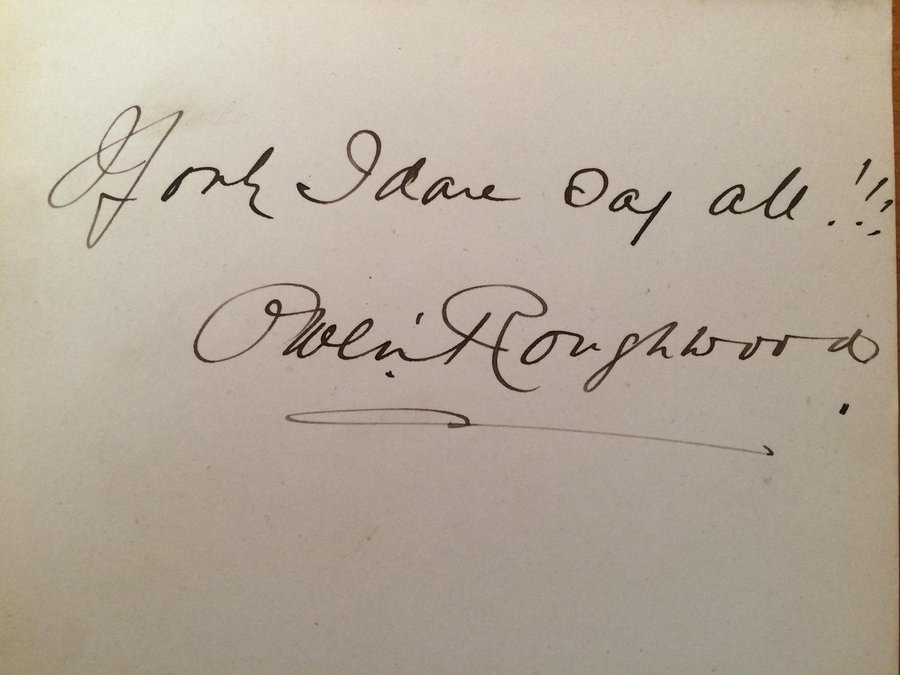 If only I dare say all!!!
Owen Roughwood.